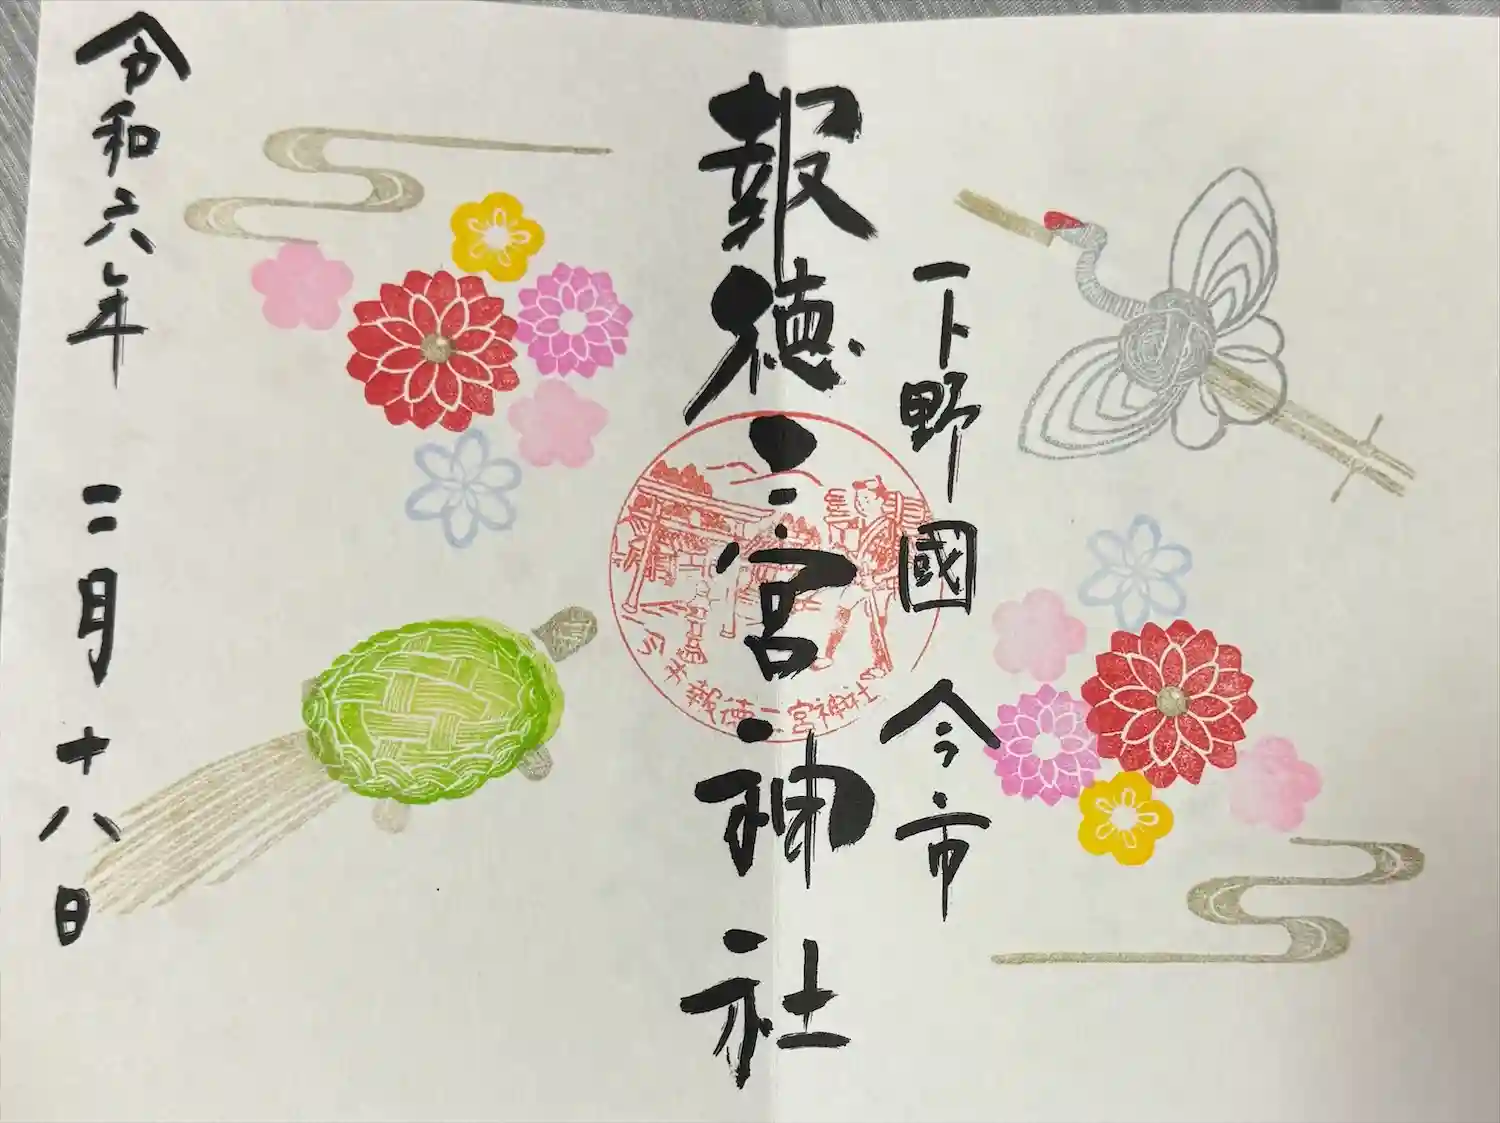 下野國 今市
報徳二宮神社
今市報徳二宮神社
令和六年 二月十八日